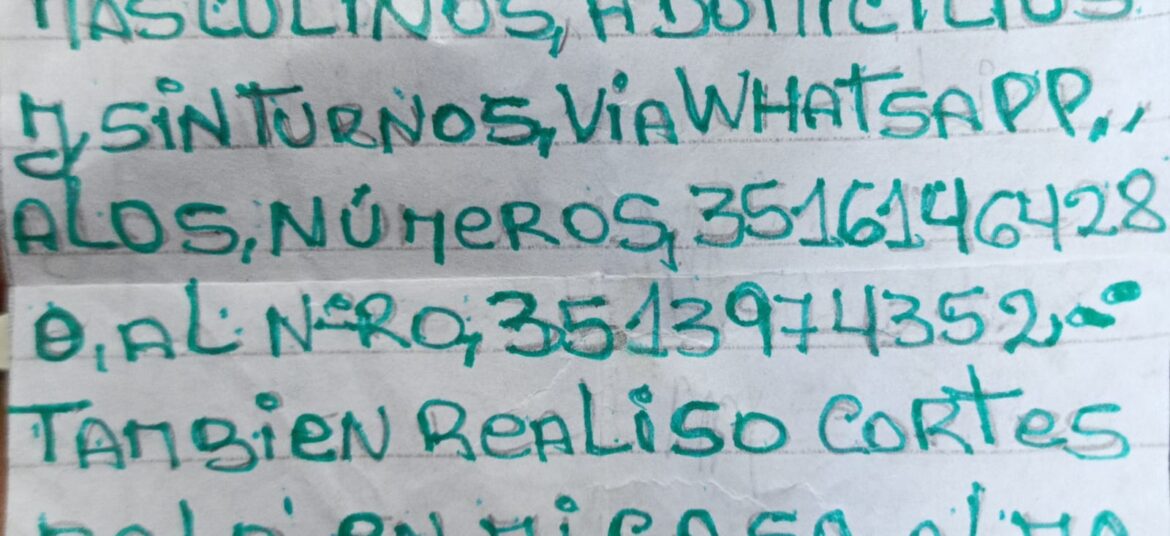 MASCULINOS, A DOMICILIOS
Y, SIN TURNOS, VIA WHATSAPP.,,
A LOS, NÚMEROS, 3516146428
O, AL NºRO, 3513974352,
TAMBIEN REALISO CORTES
EN MI CASA